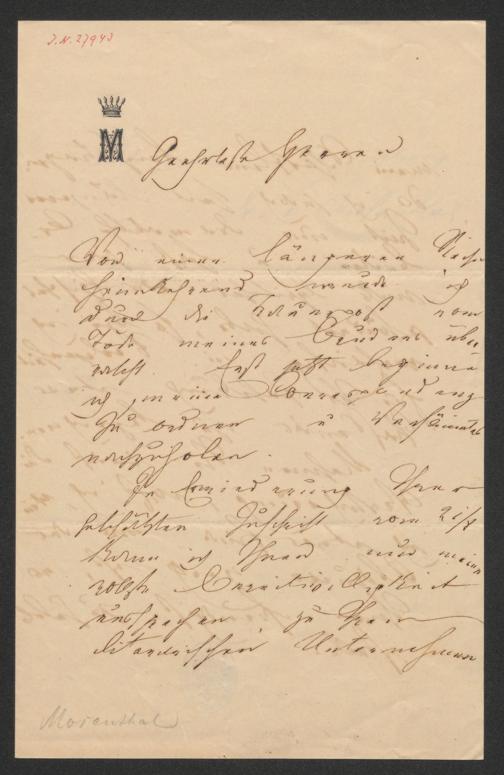 J.N. 27943
M
Geehrteste Herren
Von einer längeren Reise
heimkehrend wurde ich
durch die Trauerpost vom
Tode meines Bruders über-
rascht. Erst jetzt beginne
ich meine Correspondenz
zu ordnen u Versäumtes
nachzuholen.
In Erwiederung Ihrer
geschätzten Zuschrift vom 21/8
kann ich Ihnen nur meine
vollste Bereitwilligkeit
aussprechen zu Ihrem
literarischen Unternehmen
Mosenthal